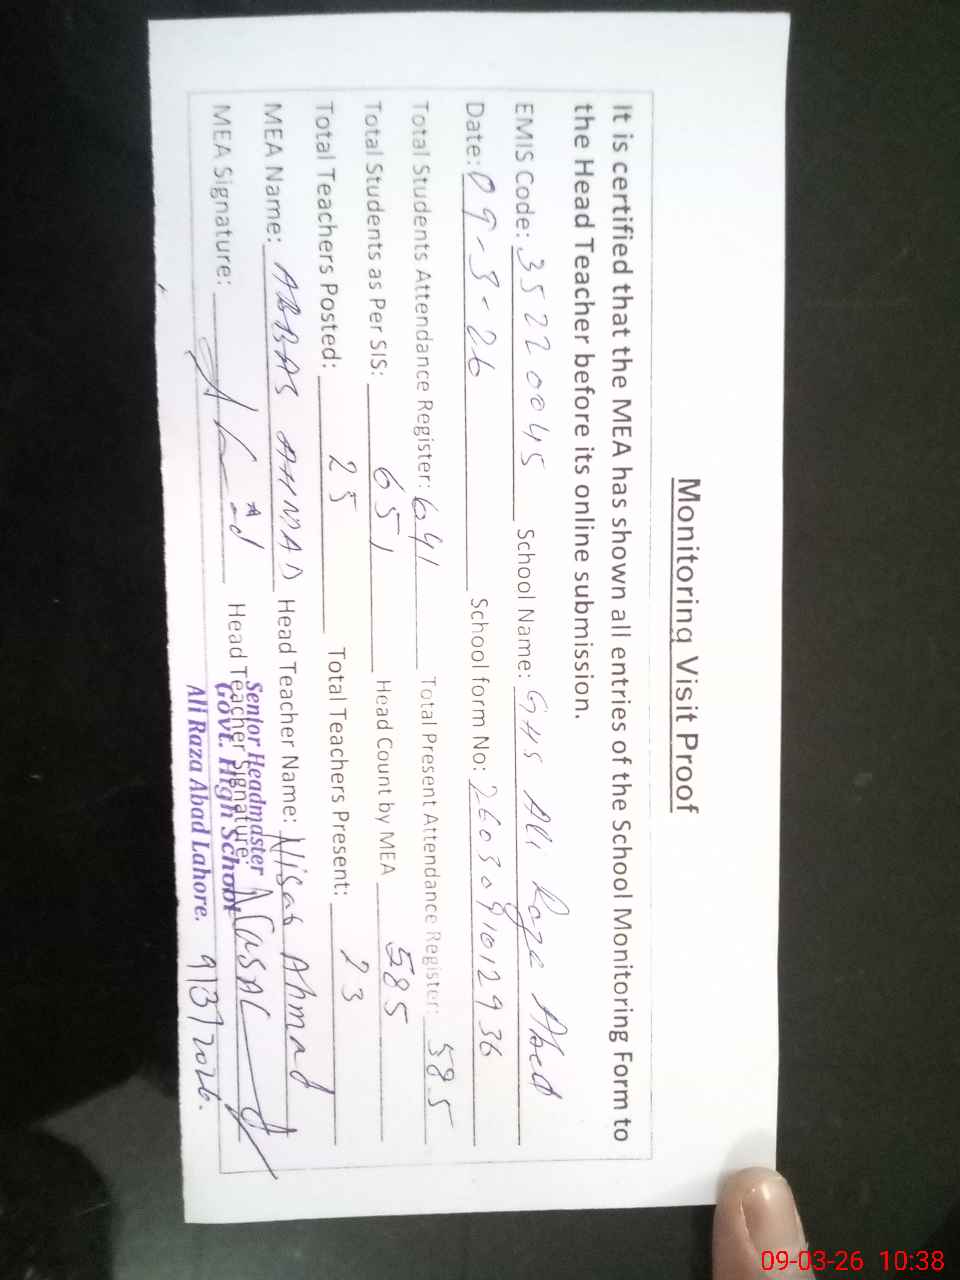 Monitoring Visit Proof
It is certified that the MEA has shown all entries of the School Monitoring Form to
the Head Teacher before its online submission.
EMIS Code: 35220045 School Name: GHS Ali Raza Abad
Date: 09-3-26 School form No: 2603091012936
Total Students Attendance Register: 641 Total Present Attendance Register: 585
Total Students as Per SIS: 651 Head Count by MEA 585
Total Teachers Posted: 25 Total Teachers Present: 23
MEA Name: ABBAS AHMAD Head Teacher Name: Nisar Ahmad
MEA Signature: Head Teacher Signature:
Senior Headmaster
Govt. High School
Ali Raza Abad Lahore. 9/3/2026.
09-03-26 10:38